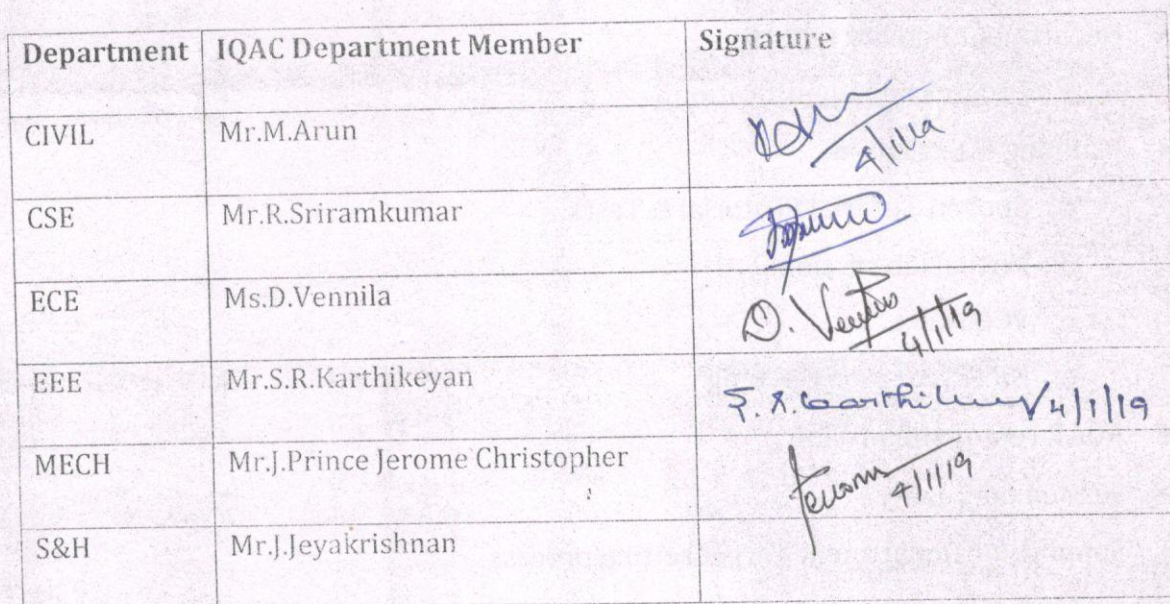 Department IQAC Department Member Signature
CIVIL Mr.M.Arun
4/1/19
CSE Mr.R.Sriramkumar
ECE Ms.D.Vennila D.
4/1/19
EEE Mr.S.R.Karthikeyan S.R. 4/1/19
MECH Mr.J.Prince Jerome Christopher
4/1/19
S&H Mr.J.Jeyakrishnan